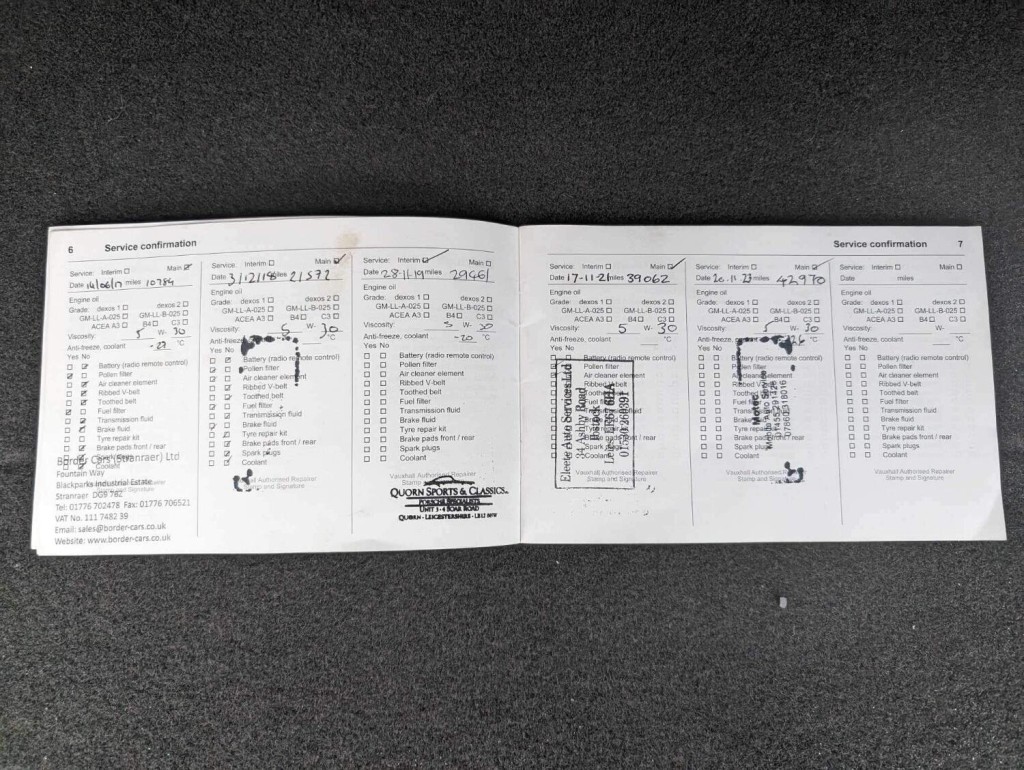 6 Service confirmation
Service: Interim Main
Date 14/06/17 miles 10784
Engine oil
Grade: dexos 1 dexos 2
GM-LL-A-025 GM-LL-B-025
ACEA A3 B4 C3
Viscosity: 5 W- 30
Anti-freeze, coolant -27 °C
Yes No
Battery (radio remote control)
Pollen filter
Air cleaner element
Ribbed V-belt
Toothed belt
Fuel filter
Transmission fluid
Brake fluid
Tyre repair kit
Brake pads front / rear
Coolant
Border Cars (Stranraer) Ltd
Fountain Way
Blackparks Industrial Estate
Stranraer DG9 7BZ
Tel: 01776 702478 Fax: 01776 706521
VAT No. 111 7482 39
Email: sales@border-cars.co.uk
Website: www.border-cars.co.uk
Service: Interim Main
Date 3/12/18 miles 21572
Engine oil
Grade: dexos 1 dexos 2
GM-LL-A-025 GM-LL-B-025
ACEA A3 B4 C3
Viscosity: 5 W- 30
Anti-freeze, °C
Yes No
Battery (radio remote control)
Pollen filter
Air cleaner element
Ribbed V-belt
Toothed belt
Fuel filter
Transmission fluid
Brake fluid
Tyre repair kit
Brake pads front / rear
Spark plugs
Coolant
Vauxhall Authorised Repairer
Stamp and Signature
Service: Interim Main
Date 28-11-19 miles 29461
Engine oil
Grade: dexos 1 dexos 2
GM-LL-A-025 GM-LL-B-025
ACEA A3 B4 C3
Viscosity: 5 W- 30
Anti-freeze, coolant -20 °C
Yes No
Battery (radio remote control)
Pollen filter
Air cleaner element
Ribbed V-belt
Toothed belt
Fuel filter
Transmission fluid
Brake fluid
Tyre repair kit
Brake pads front / rear
Spark plugs
Coolant
Vauxhall Authorised Repairer
Stamp
QUORN SPORTS & CLASSICS
PORSCHE SPECIALISTS
UNIT 3-4 SOAR ROAD
QUORN - LEICESTERSHIRE - LE12 8BW
Service confirmation 7
Service: Interim Main
Date 17-11-21 miles 39062
Engine oil
Grade: dexos 1 dexos 2
GM-LL-A-025 GM-LL-B-025
ACEA A3 B4 C3
Viscosity: 5 W- 30
Anti-freeze, coolant °C
Yes No
Battery (radio remote control)
Pollen filter
Air cleaner element
Ribbed V-belt
Toothed belt
Fuel filter
Transmission fluid
Brake fluid
Tyre repair kit
Brake pads front / rear
Spark plugs
Coolant
Vauxhall Authorised Repairer
Stamp and Signature
Auto Services Ltd
34 Ashby Road
Ibstock
Service: Interim Main
Date 20.11.23 miles 42970
Engine oil
Grade: dexos 1 dexos 2
GM-LL-A-025 GM-LL-B-025
ACEA A3 B4 C3
Viscosity: 5 W- 30
Anti-freeze, -26 °C
Yes No
Battery (radio remote control)
Pollen filter
Air cleaner element
Ribbed V-belt
Toothed belt
Fuel filter
Transmission fluid
Brake fluid
Tyre repair kit
Brake pads front / rear
Spark plugs
Coolant
Vauxhall Authorised Repairer
Stamp and
Auto Service
Service: Interim Main
Date miles
Engine oil
Grade: dexos 1 dexos 2
GM-LL-A-025 GM-LL-B-025
ACEA A3 B4 C3
Viscosity: W-
Anti-freeze, coolant °C
Yes No
Battery (radio remote control)
Pollen filter
Air cleaner element
Ribbed V-belt
Toothed belt
Fuel filter
Transmission fluid
Brake fluid
Tyre repair kit
Brake pads front / rear
Spark plugs
Coolant
Vauxhall Authorised Repairer
Stamp and Signature